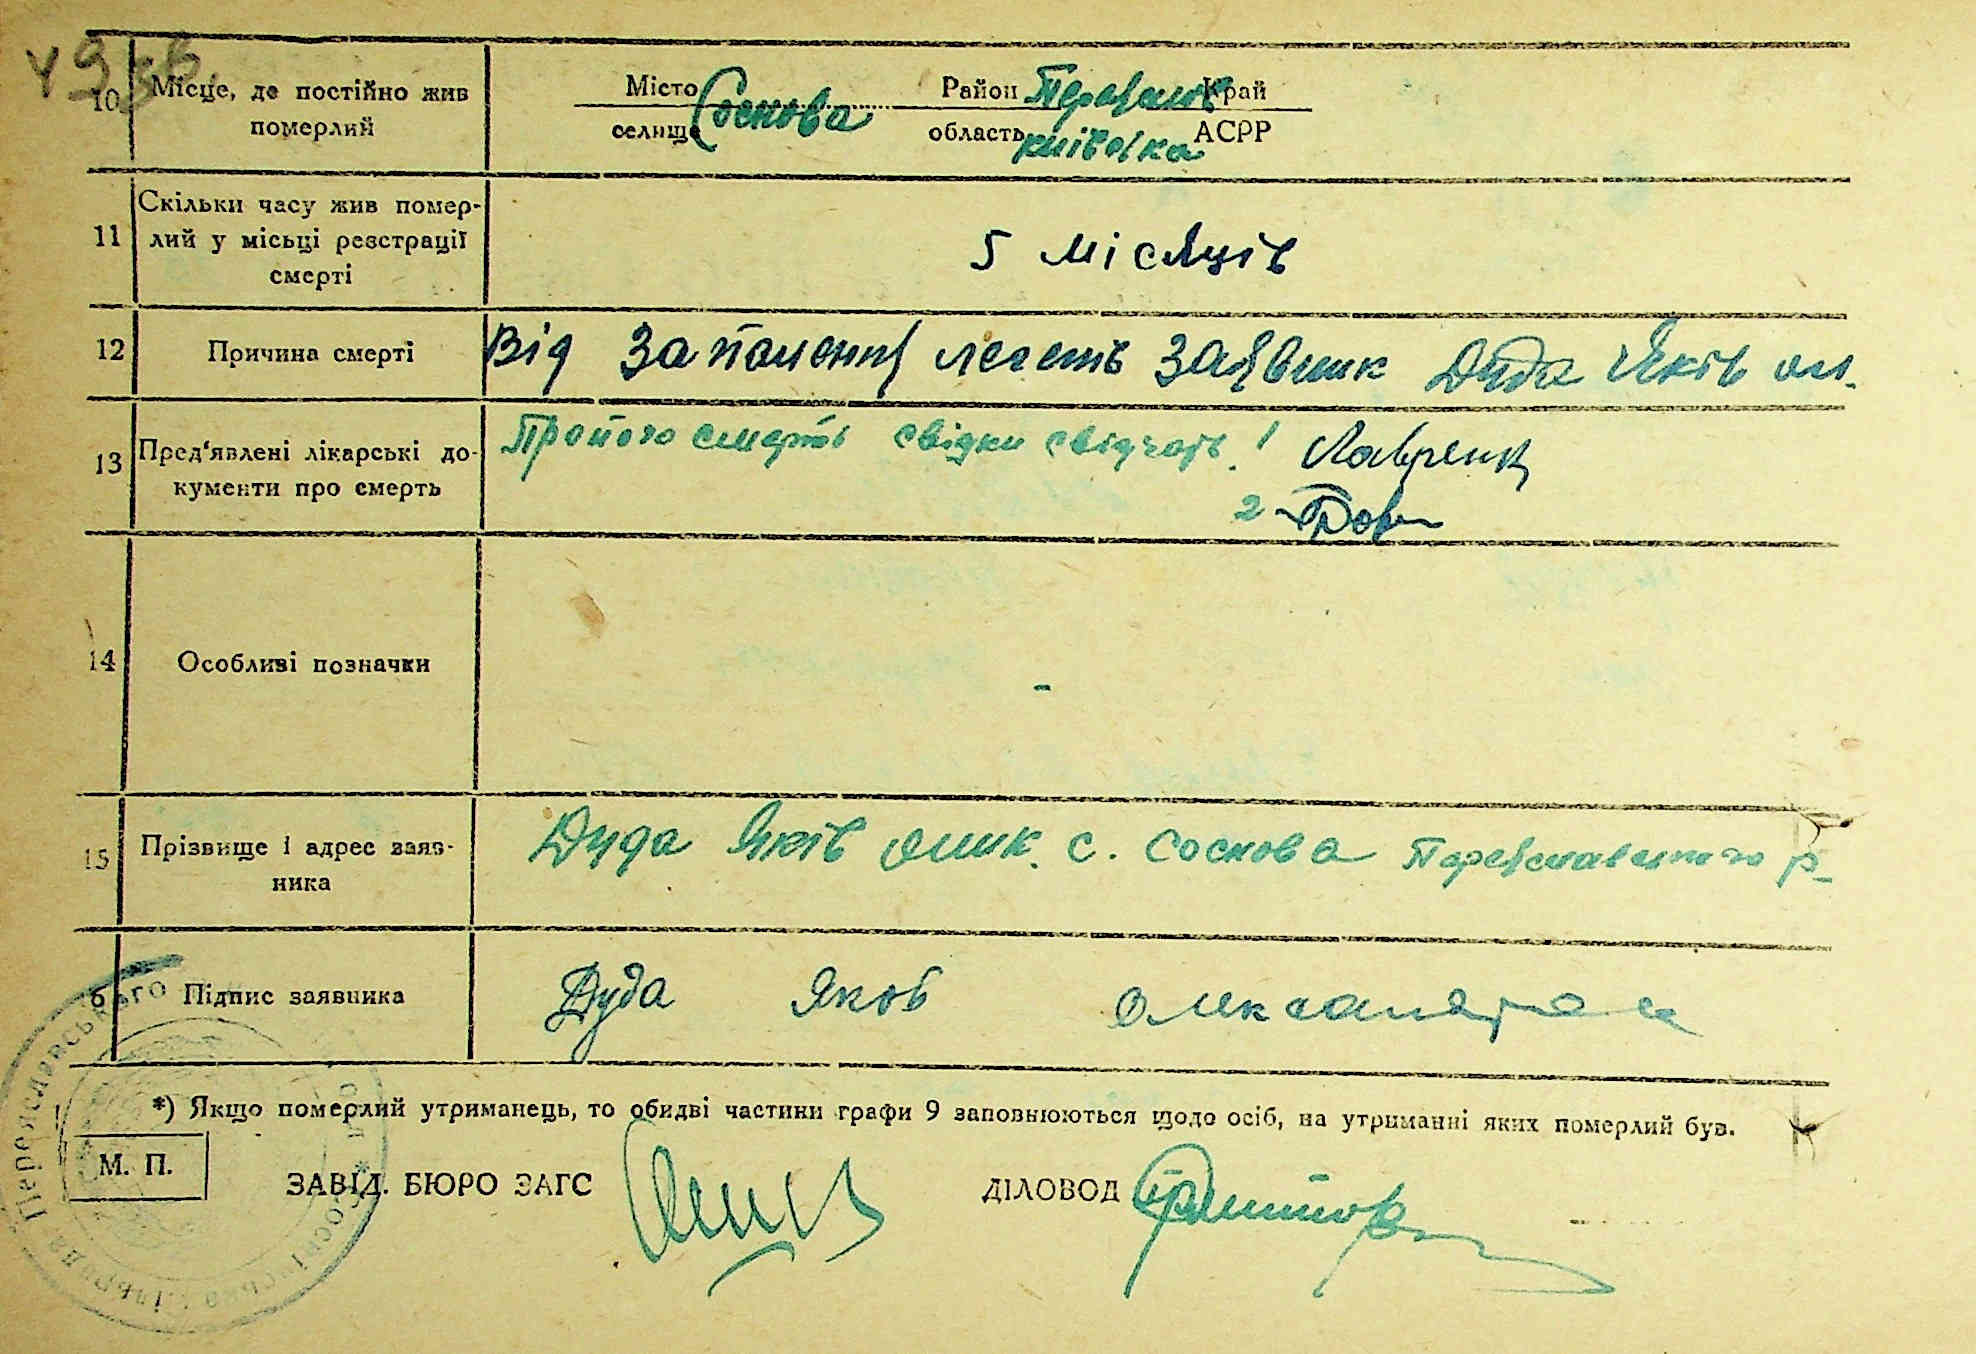 10 Місце, де постійно жив
померлий
Місто
селище Соснова
Район Переяслів Край
область київська АСРР
11 Скільки часу жив помер-
лий у місьці реєстрації
смерті
5 місяців
12 Причина смерті
Від Запаления легень Заявник Дуда Яків ол.
13 Пред'явлені лікарські до-
кументи про смерть
Про його смерть свідки свідчать. 1 Лавренк
2
14 Особливі позначки
-
15 Прізвище і адрес заяв-
ника
Дуда Яків олик. с. Соснова Переяславського р-
6 Підпис заявника
Дуда Яков олександро
*) Якщо померлий утриманець, то обидві частини графи 9 заповнюються щодо осіб, на утриманні яких померлий був.
М. П.
ЗАВІД. БЮРО ЗАГС
ДІЛОВОД